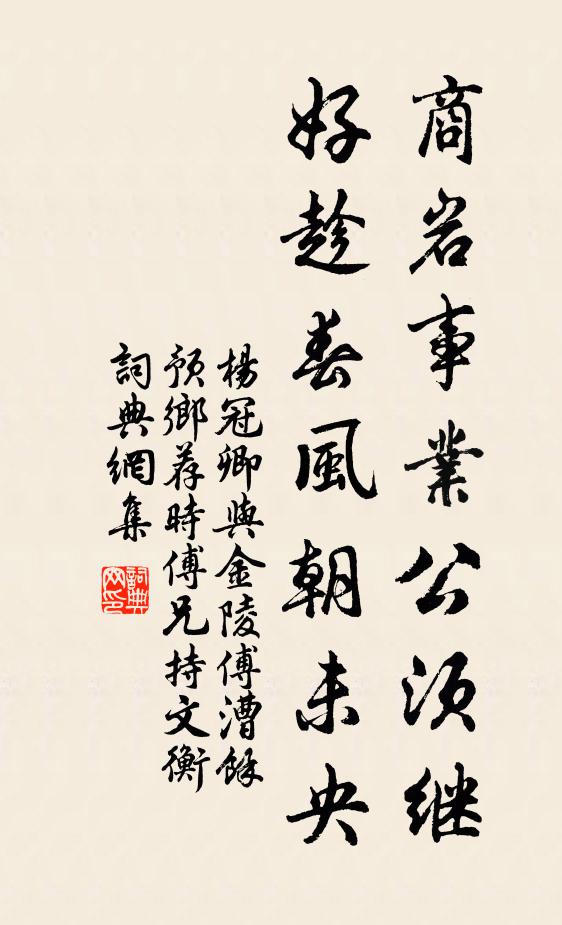 商岩事業公须继
好趁春風朝未央
楊冠卿與金陵傅漕餘
预鄉荐時傅兄持文衡
詞典網集
詞典网印